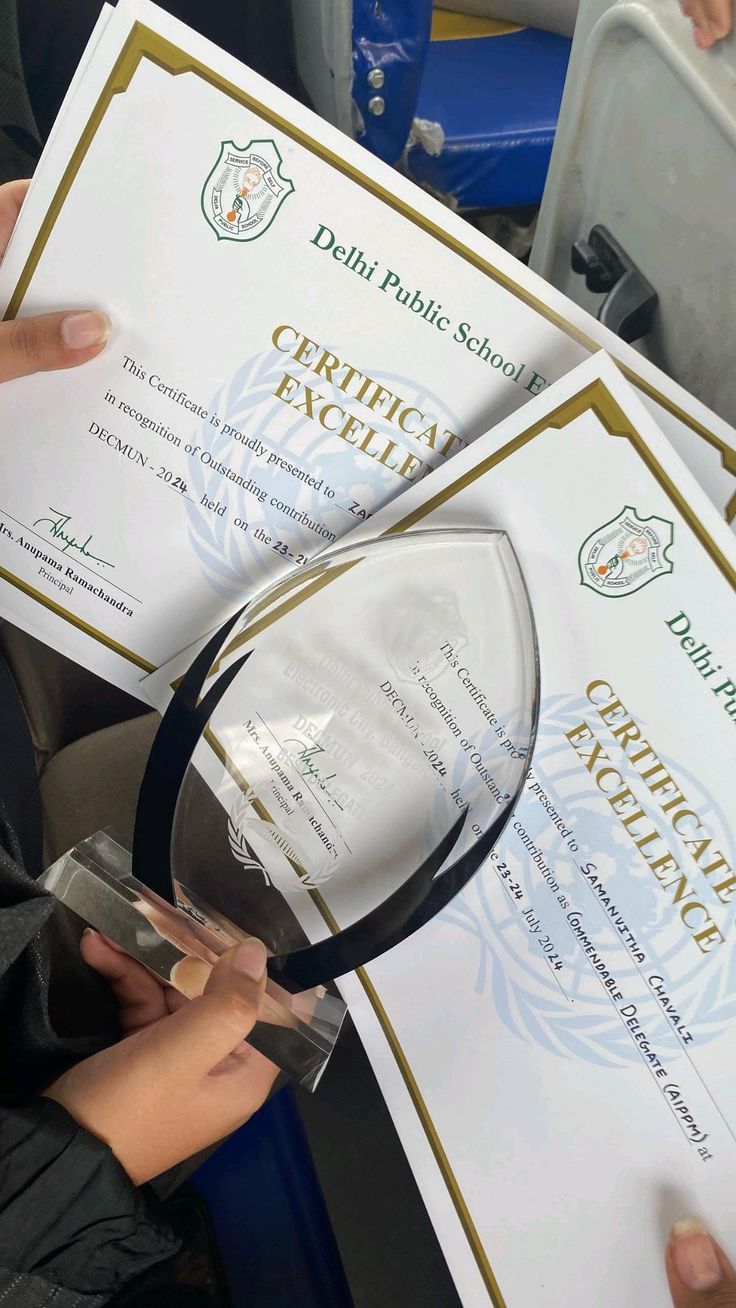 SERVICE BEFORE SELF
DELHI PUBLIC SCHOOL
Delhi Public School E
CERTIFICAT
EXCELLEN
This Certificate is proudly presented to ZA
in recognition of Outstanding contribution
DECMUN - 2024 held on the 23-2
Mrs. Anupama Ramachandra
Principal
Delhi Pu
CERTIFICATE
EXCELLENCE
This Certificate is proudly presented to SAMANVITHA CHAVALI
in recognition of Outstanding contribution as COMMENDABLE DELEGATE (AIPPM) at
DECMUN - 2024 held on the 23-24 July 2024.
Mrs. Anupama Ramachandra
Principal
Electronic City
DECMUN 2024
BEST DELEGATE